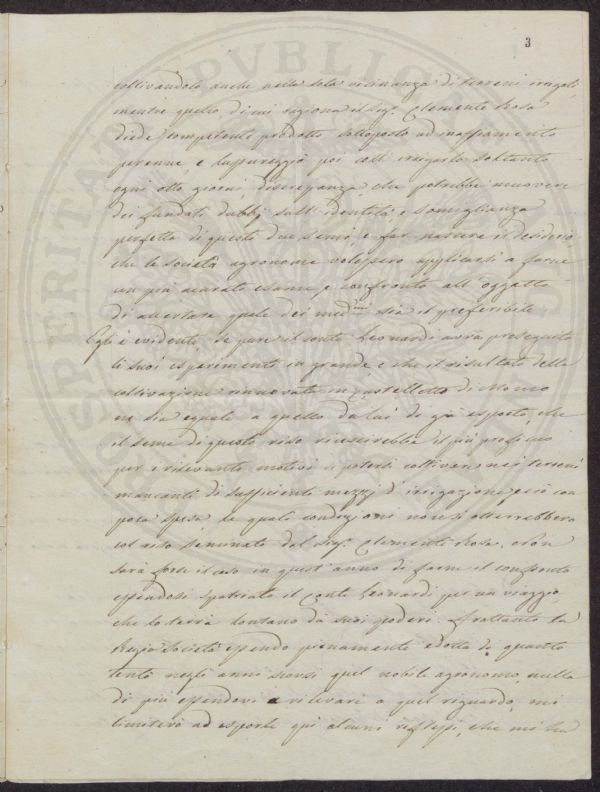 3
coltivandolo anche nella sola vicinanza di terreni irrigati,
mentre quello di cui ragiona il Sigr. Clemente Rosa
diede competente prodotto sottoposto ad inaffiamento
perenne, e lussureggiò poi coll' irrigarlo soltanto
ogni otto giorni, discrepanza che potrebbe muovere
dei fondati dubbj sull' identità e somiglianza
perfetta di questi due semi, e far nascere il desiderio
che le società agronome volessero applicarsi a farne
un più accurato esame, e confronto all' oggetto
di accertare quale dei medmi sia il preferibile
Egli è evidente, se pure il conte Leonardi avrà proseguito
li suoi esperimenti in grande e che il risultato della
coltivazione rinnovata in Castelletto di
ne sia eguale a quello da lui di già esposto, che
il seme di questo riso riescirebbe il più proficuo
per i rilevanti motivi di potersi coltivare nei terreni
mancanti di sufficienti mezzi d' irrigazione, e con
poca spesa, le quali condizioni non si otterrebbero
col riso seminato dal Sigr. Clemente Rosa. Non
sarà forse il caso in quest' anno di farne il confronto
essendosi spatriato il conte Leonardi per un viaggio,
che lo terrà lontano da suoi poderi. Frattanto la
Regia Società essendo pienamente edotta di quanto
tentò negli anni scorsi quel nobile agronomo, nulla
di più essendovi a rilevare a quel riguardo, mi
limiterò ad esporle qui alcuni riflessi, che mi ha
PROSPERITATI PVBLICAE